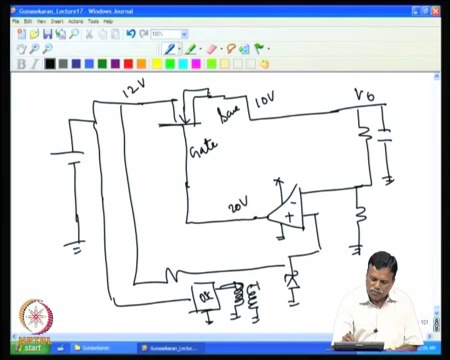 Gunasekaran_Lecture17 - Windows Journal
File Edit View Insert Actions Tools Help
100%
B I
12V
10V
Vo
Gate
20V
start
Gunasekaran
Gunasekaran_Lectu...